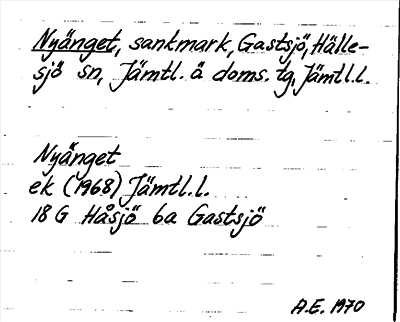 Nyänget, sankmark, Gastsjö, Hälle-
sjö sn, Jämtl. ä doms. tg, Jämtl.l.
Nyänget
ek (1968) Jämtl.l.
18 G Håsjö 6a Gastsjö
A.E. 1970